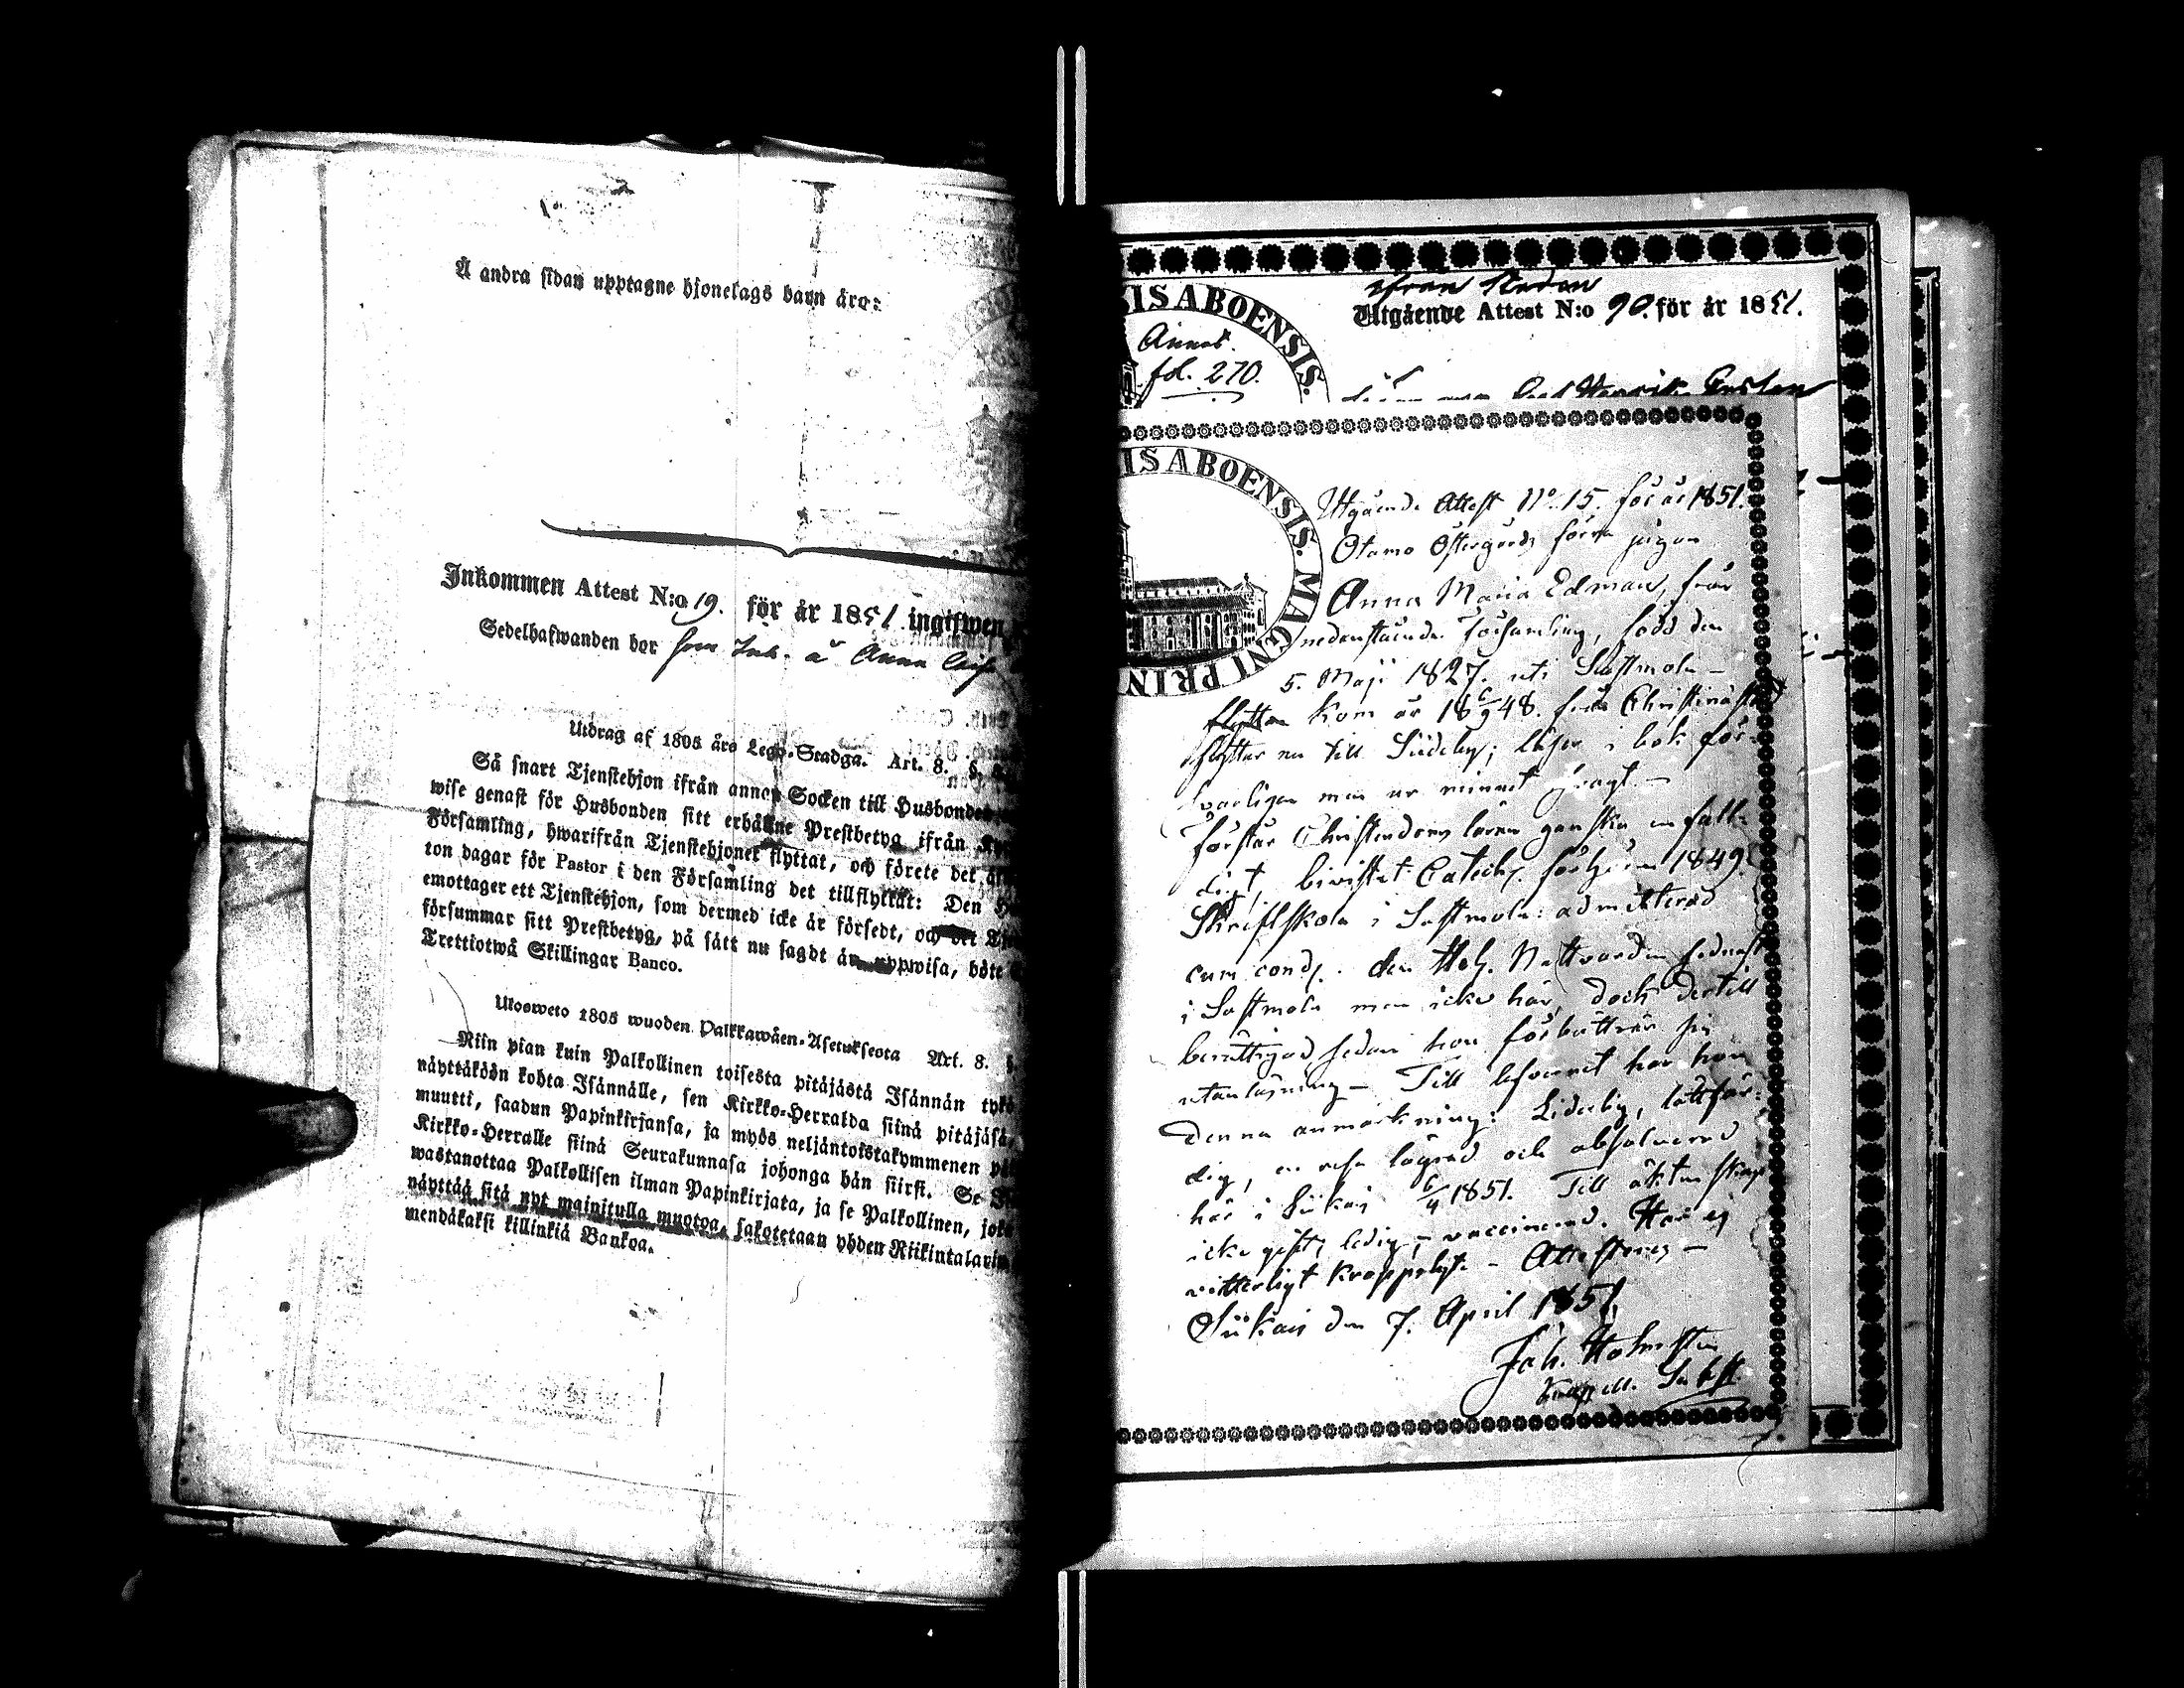 Å andra sidan upptagne hjonelags barn äro:
Inkommen Attest N:o 19. för år 1851 ingifwen
Sedelhafwanden bor som Inh. å Anna
Utdrag af 1805 års Lego-Stadga. Art. 8. §.
Så snart Tjenstehjon ifrån annan Socken till Husbonden
wise genast för Husbonden sitt erhållne Prestbetyg ifrån
Församling, hwarifrån Tjenstehjonet flyttat, och förete det
ton dagar för Pastor i den Församling det tillflyttat: Den
emottager ett Tjenstehjon, som dermed icke är försedt, och det
försummar sitt Prestbetyg, på sått nu sagdt är uppwisa, böte
Trettiotwå Skillingar Banco.
Ulosweto 1805 wuoden Palkkawäen-Asetuksesta Art. 8. §.
Niin pian kuin Palkollinen toisesta pitäjästä Isännän tykö
näyttäköön kohta Isännälle, sen Kirkko-Herralda siinä pitäjäsä,
muutti, saadun Papinkirjansa, ja myös neljäntoistakymmenen
Kirkko-Herralle siinä Seurakunnasa johonga hän siirsi. Se
wastanottaa Palkollisen ilman Papinkirjata, ja se Palkollinen, joka
näyttää sitä nyt mainitulla muotoa, sakotetaan yhden Riikintalarin
mendäkaksi killinkiä Bankoa.
ISABOENSIS.
Annas
fol. 270.
Utgående Attest N:o 90. för år 1851.
Henrik
ISABOENSIS. MAGNI PRIN
Utgående Attest No. 15. för år 1851.
Otamo Östergårds förra pigan
Anna Maria Edman, från
nedanstående Församling, född den
5. Maji 1827. uti Sastmola –
flyttar kom år 18 6/9 48. från Christinæstad
flyttar nu till Sideby; läser i bok för-
svarligen men ur minnet svagt. –
Förstår Christendoms läran ganska enfalli-
digt, bivistat Catech. förhören 1849.
Skriftskola i Sastmola: admitterad
cum cond. den Hel. Nattvarden sednast
i Sastmola men icke här, doch dertill
berättigad sedan hon förbättrar sin
utanläsning – Till lefvernet har hon
denna anmärkning: Liderlig, lättfär-
dig, en resa lägrad och absolverad
här i Siikais 6/4 1851. Till äktenskap
icke gift, ledig, – vaccinerad. Har ej
vitterligt kroppslyte – Attesteras –
Siikais den 7. April 1851.
Joh. Holmsten
Kapell. Subst.